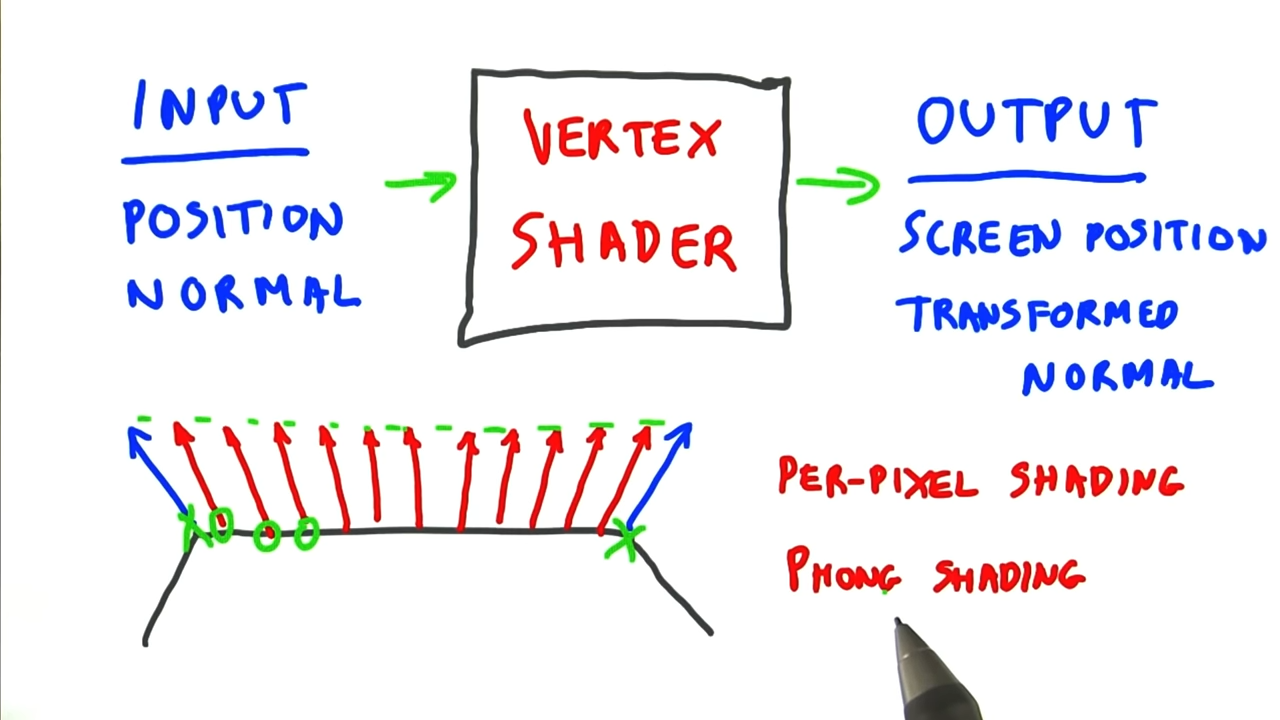 INPUT
POSITION
NORMAL
VERTEX
SHADER
OUTPUT
SCREEN POSITION
TRANSFORMED
NORMAL
PER-PIXEL SHADING
PHONG SHADING